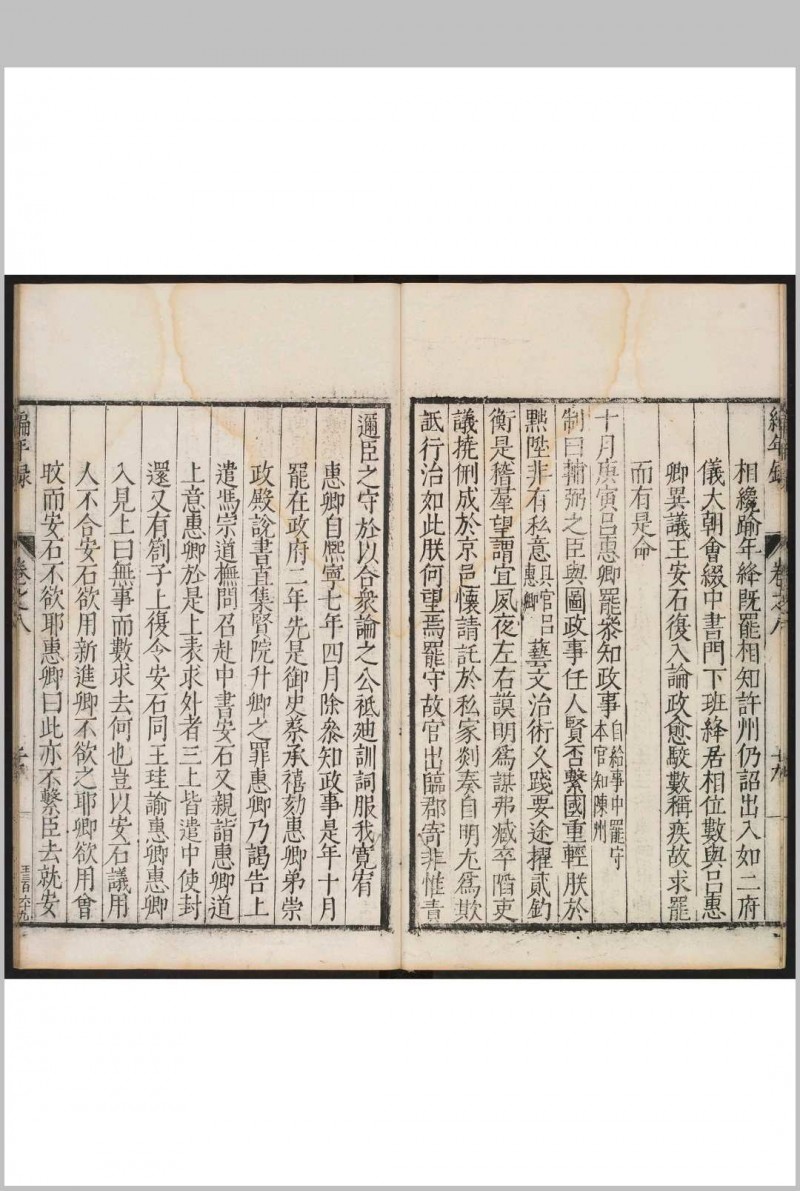 編年錄 卷之八
相纔踰年絳既罷相知許州仍詔出入如二府
儀大朝會綴中書門下班絳居相位數與呂惠
卿異議王安石復入論政愈駮數稱疾故求罷
而有是命
十月庚寅呂惠卿罷參知政事自給事中罷守本官知陳州
制曰輔弼之臣與圖政事任人賢否繫國重輕朕於
黜陟非有私意具官呂惠卿藝文治術久踐要途擢貳鈞
衡是稽羣望謂宜夙夜左右謨明爲謀弗臧卒陷吏
議撓刑成於京邑懷請託於私家剡奏自明尤爲欺
詆行治如此朕何望焉罷守故官出臨郡寄非惟責
邇臣之守於以合衆論之公祗廸訓詞服我寬宥
惠卿自熈寧七年四月除參知政事是年十月
罷在政府二年先是御史蔡承禧劾惠卿弟崇
政殿說書直集賢院升卿之罪惠卿乃謁告上
遣馮宗道撫問召赴中書安石又親詣惠卿道
上意惠卿於是上表求外者三上皆遣中使封
還又有劄子上復令安石同王珪諭惠卿惠卿
入見上曰無事而數求去何也豈以安石議用
人不合安石欲用新進卿不欲之耶卿欲用曾
旼而安石不欲耶惠卿曰此亦不繫臣去就安
編年錄 卷之八